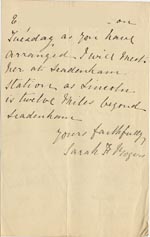 on
Tuesday as you have
arranged. I will meet
her at Leadenham
Station as Lincoln
is twelve miles beyond
Leadenham
Yours faithfully
Sarah